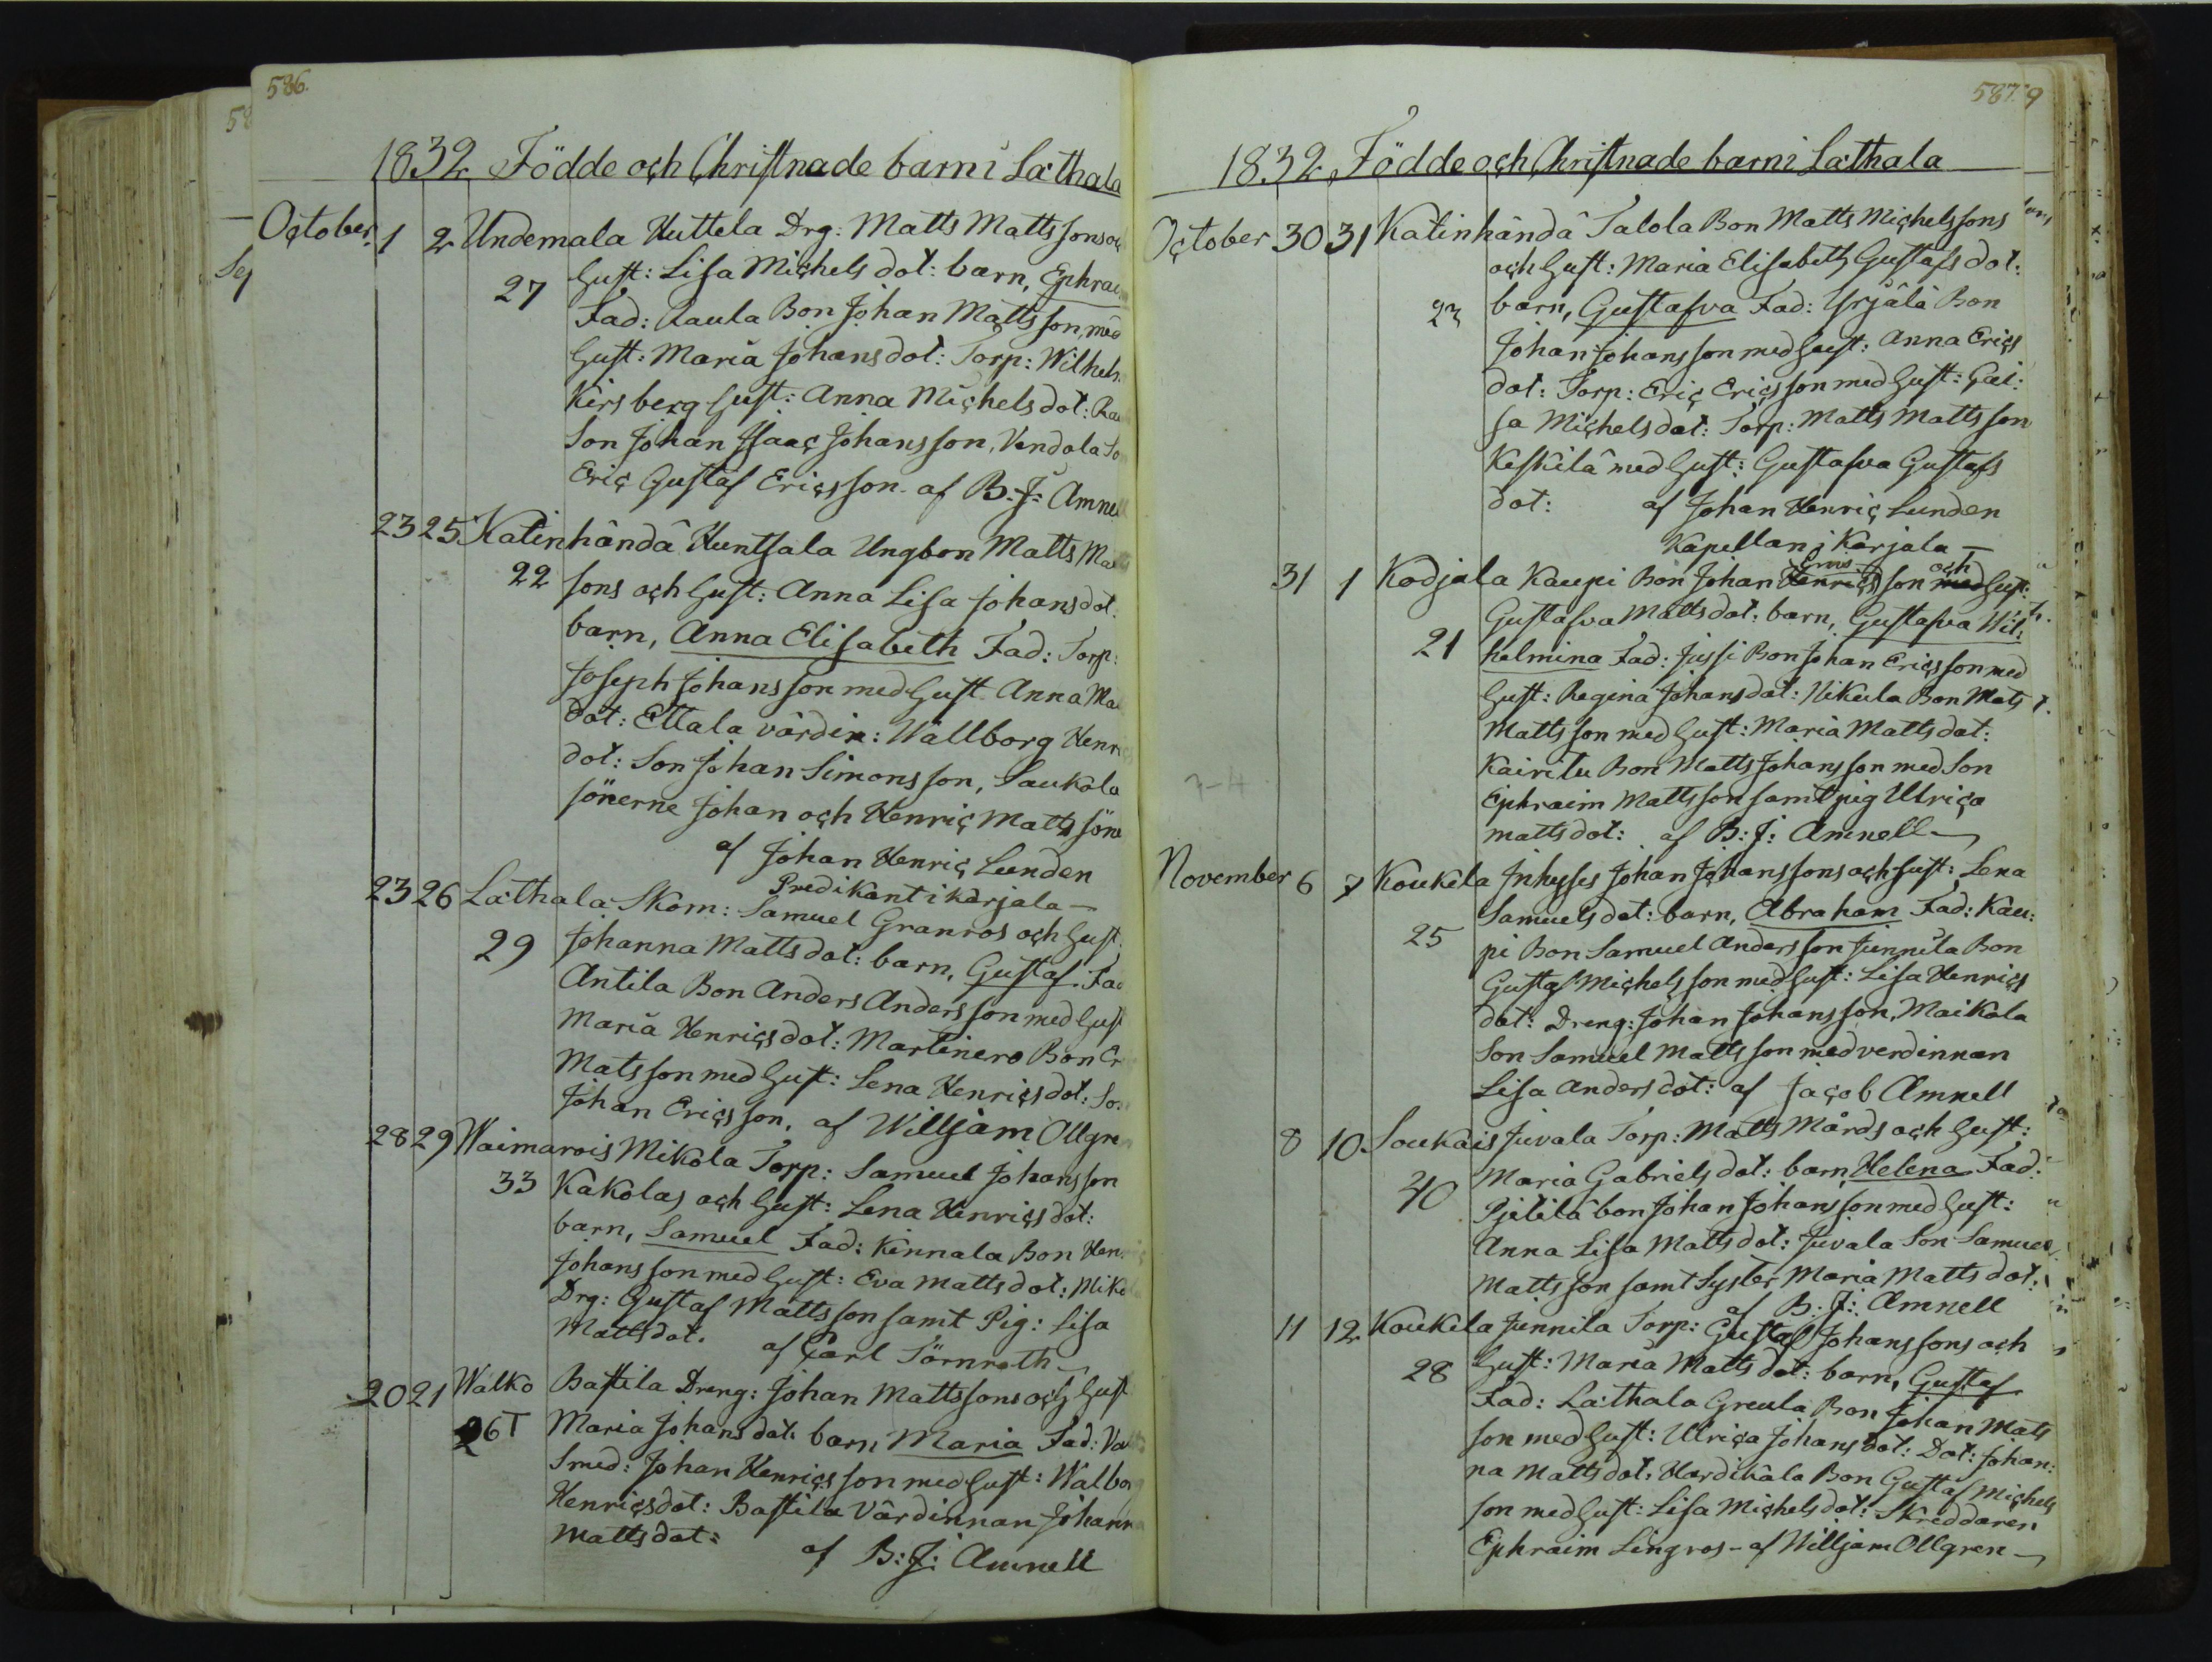 586.
1832 Födde och Christnade barn i Lathala
October 1 2 Undemala Huttela Drg: Matts Mattssons och
27 Hust: Lisa Michels dot: barn, Ephraim
Fad: Raula Bon Johan Mattsson, med
Hust: Maria Johansdot: Torp: Wilhelm
Kirsberg Hust: Anna Michelsdot: Rau
Son Johan Isaac Johansson, Vendola Son
Eric Gustaf Ericsson. af B: J: Amnell
23 25 Katinhändä Huntsala Ungbon Matts Matts
22 sons och Hust: Anna Lisa Johansdot:
barn, Anna Elisabeth Fad: Torp:
Joseph Johansson med Hust Anna Ma
dot: Ettala värdin: Wallborg Henrics
dot: Son Johan Simonsson, Saukola
sönerne Johan och Henric Matts söner
af Johan Henric Lunden
Predikant i Karjala —
23 26 Lathala Skom: Samuel Granros och Hust:
29 Johanna Mattsdot: barn, Gustaf Fad
Antila Bon Anders Andersson med Hust
Maria Henricsdot: Martinero Bon Eric
Matsson med Hust: Lena Henricsdot: Son
Johan Ericsson, af Willjam Ollgren
28 29 Waimarois Mikola Torp: Samuel Johansson
33 Kakolas och Hust: Lena Henricsdot:
barn, Samuel Fad: Kinnala Bon Henric
Johansson med Hust: Eva Mattsdot: Mikola
Drg: Gustaf Mattsson samt Pig: Lisa
Mattsdot. af Carl Törnroth —
20 21 Walko Bastila Dreng: Johan Mattssons och Hust
26 T Maria Johansdot: barn Maria Fad: Valko
Smed: Johan Henricsson med Hust: Walborg
Henricsdot: Bastila Värdinnan Johanna
Mattsdot: af B: J: Amnell
587.
1832 Födde och Christnade barn i Lathala
October 30 31 Katinhändä Talola Bon Matts Michelssons
och Hust: Maria Elisabeth Gustafs dot:
23 barn, Gustafva Fad: Yrjälä Bon
Johan Johansson med Hust: Anna Erics
dot: Torp: Eric Ericsson med Hust: Cai:
sa Michelsdot: Torp: Matts Mattsson
Keskilä med Hust: Gustafva Gustafs
dot: af Johan Henric Lunden
Kapellan i Karjala —
och
31 1 Kodjala Kaupi Bon Johan Henricsson med Hust:
Gustafva Mattsdot: barn, Gustafva Wil:
21 helmina Fad: Jussi Bon Johan Ericsson med
Hust: Regina Johansdot: Nikula Bon Mats
Mattsson med Hust: Maria Mattsdot:
Kairitu Bon Matts Johansson med Son
Ephraim Mattsson samt pig Ulrica
mattsdot: af B: J: Amnell —
November 6 7 Koukela Inhyses Johan Johanssons och Hust: Lena
Samuelsdot: barn, Abraham Fad: Kau:
25 pi Bon Samuel Andersson Junnila Bon
Gustaf Michelsson med Hust: Lisa Henrics
dot: Dreng: Johan Johansson, Maikola
Son Samuel Mattsson med verdinnan
Lisa Andersdot: af Jacob Amnell
8 10 Soukais Juvala Torp: Matts Mårds och Hust:
40 Maria Gabrielsdot: barn, Helena Fad:
Pjelilä bon Johan Johansson med Hust:
Anna Lisa Mattsdot: Juvala Son Samuel
Mattsson samt Syster Maria Mattsdot.
af B: J: Amnell
11 12 Koukela Junnila Torp: Gustaf Johanssons och
28 Hust: Maria Mattsdot: barn, Gustaf
Fad: Lathala Greula Bon Johan Mats
son med Hust: Ulrica Johansdot: Dot: Johan:
na Mattsdot: Hardikala Bon Gustaf Michels
son med Hust: Lisa Michelsdot: Skreddaren
Ephraim Lingros — af Willjam Ollgren —